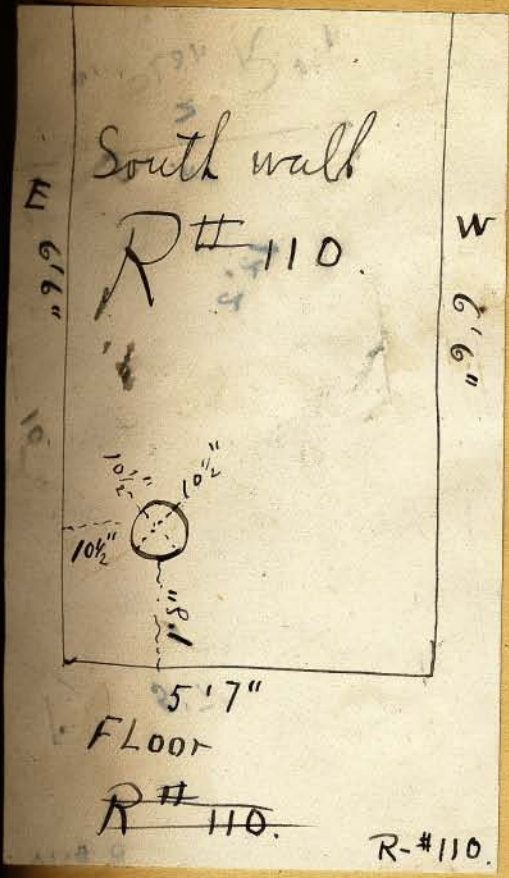 South wall
R# 110.
E 6'6"
W 6'6"
10½" 10½"
10½"
1'8"
5'7"
FLoor
R# 110.
R-#110.